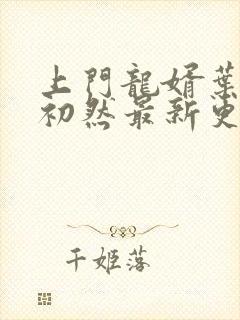 上門龍婿葉
初然最新更
千姬落